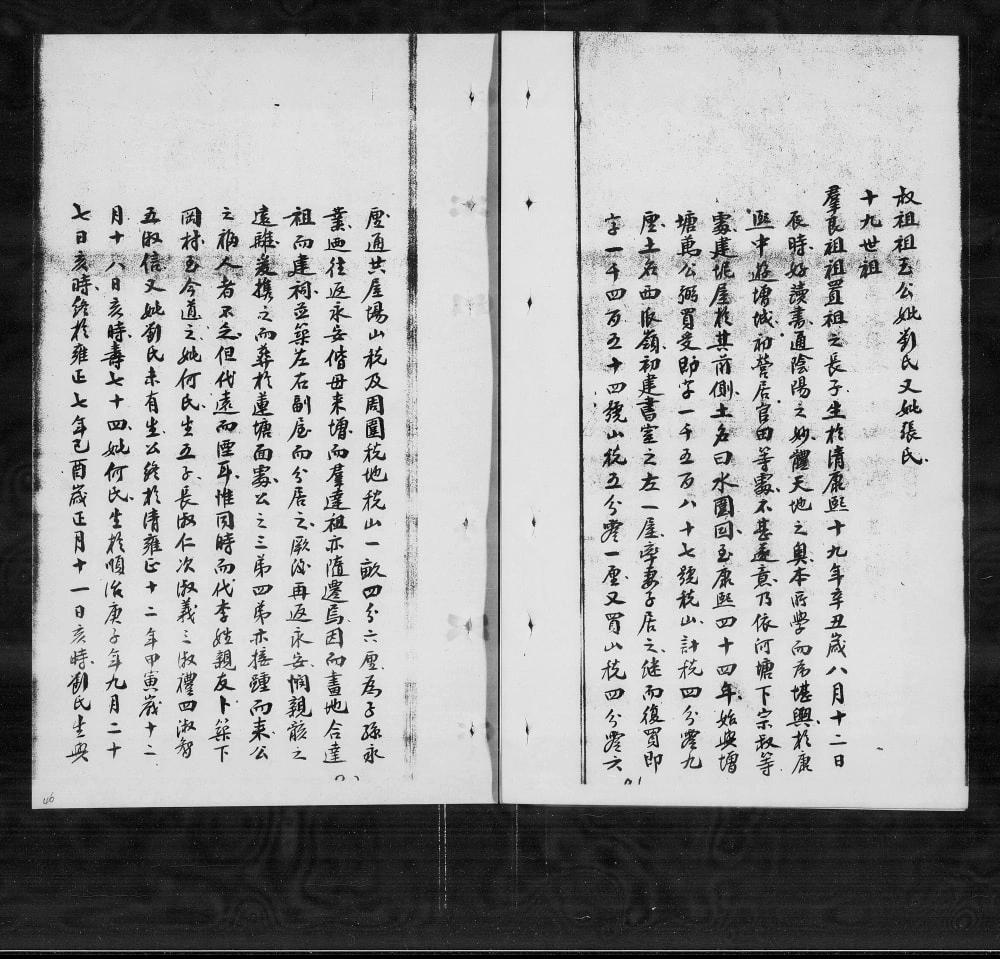 叔祖祖玉公妣劉氏又妣張氏
十九世祖
羣良祖祖置祖之長子生於清康熙十九年辛丑歲八月十二日
辰時好讀書通陰陽之妙體天地之奧本所學而為堪輿於康
熙中遊塘城初營居官田等處不甚遂意乃依何塘下宗叔等
處建坭屋於其前側土名曰水圍回至康熙四十四年始與增
塘萬公弼買受即字一千五百八十七號稅山計稅四分零九
厘土名西眼嶺初建書室之左一屋率妻子居之继而復買即
字一千四百五十四號山稅五分零一厘又買山稅四分零六
厘通共屋場山稅及周圍稅地稅山一畝四分六厘為子孫永
業迺往返永安偕母来增而羣達祖亦隨遷焉因而畫地合達
祖而建祠並築左右副屋而分居之厥後再返永安憫親骸之
遠離爰携之而葬於蓮塘面處公之三弟四弟亦接踵而来公
之稱人者不乏但代遠而湮耳惟同時而代李姓親友卜築下
岡村至今道之妣何氏生五子長淑仁次淑義三淑禮四淑智
五淑信又妣劉氏未有生公终於清雍正十二年甲寅歲十二
月十八日亥時壽七十四妣何氏生於順治庚子年九月二十
七日亥時终於雍正七年己酉歲正月十一日亥時劉氏生與
46